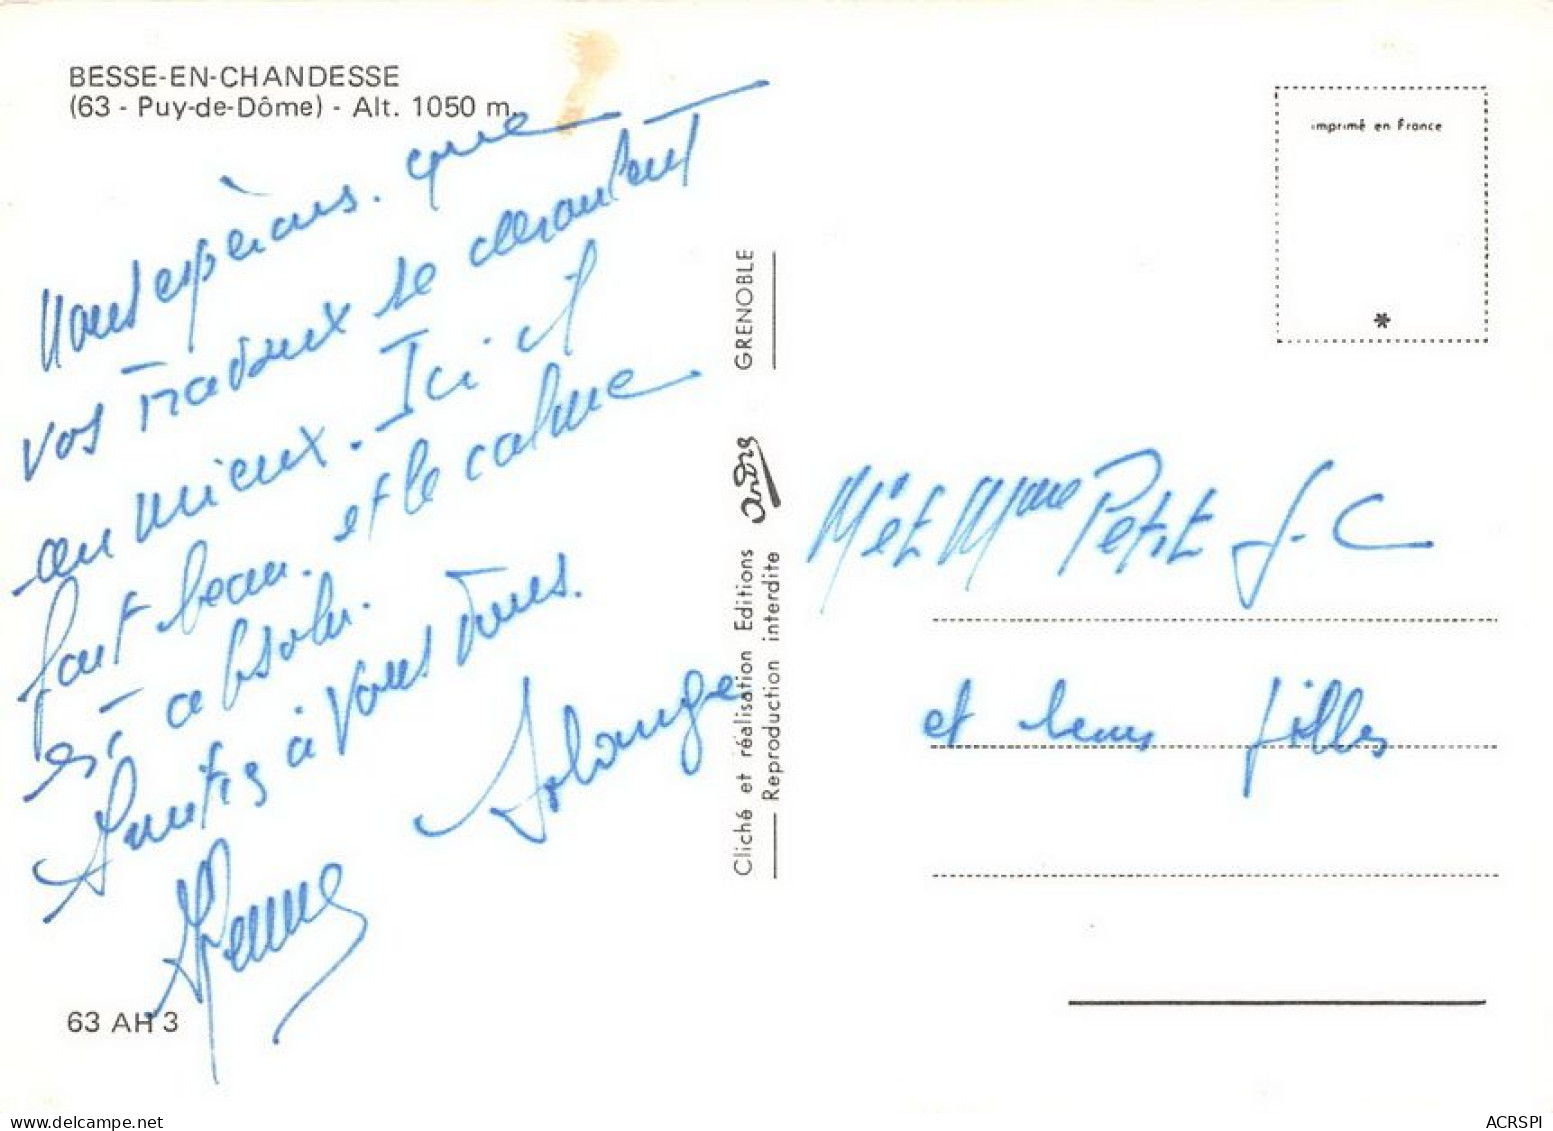 BESSE-EN-CHANDESSE
(63 - Puy-de-Dôme) - Alt. 1050 m.
Nous espèrons. que
vos travaux se déroulent
au mieux. Ici il
fait beau. et le calme
est absolu.
Amitiés à vous tous.
Solange
63 AH 3
Cliché et réalisation Editions andré GRENOBLE
Reproduction interdite
imprimé en France
*
Mr et Mme Petit J-C
et leurs filles
delcampe.net
ACRSPI